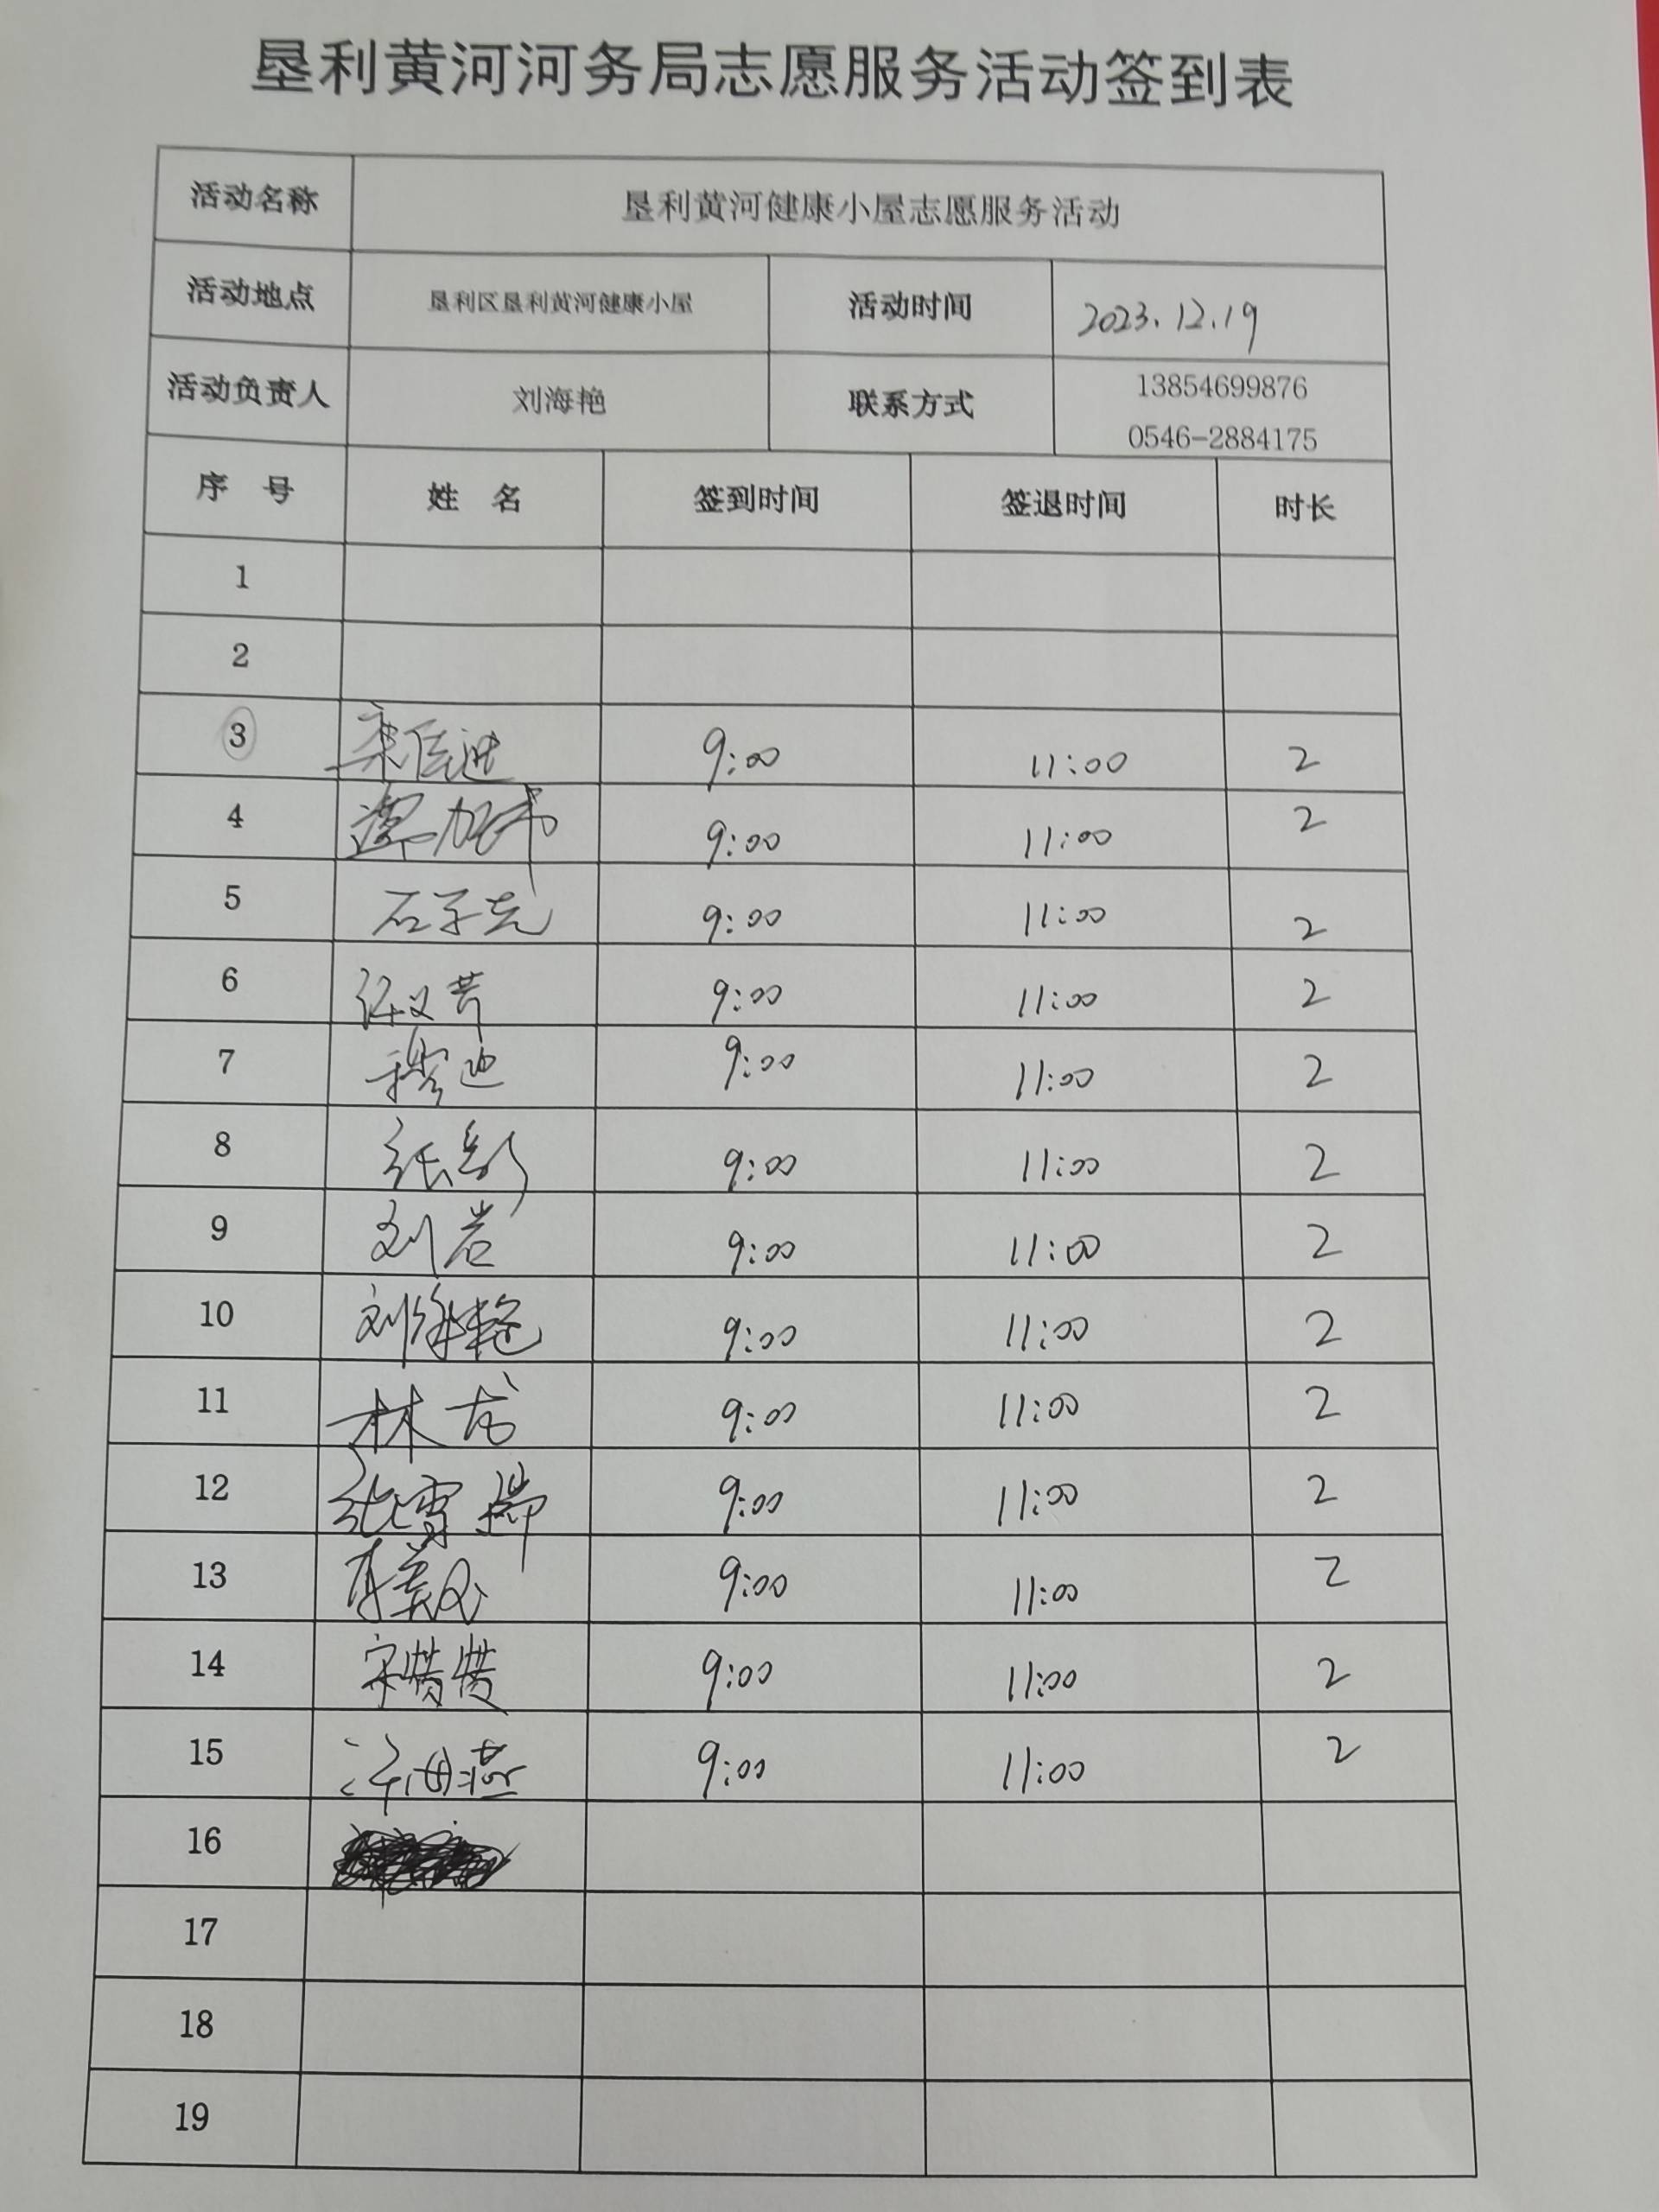 垦利黄河河务局志愿服务活动签到表
活动名称 垦利黄河健康小屋志愿服务活动
活动地点 垦利区垦利黄河健康小屋 活动时间 2023.12.19
活动负责人 刘海艳 联系方式 13854699876
0546-2884175
序 号 姓 名 签到时间 签退时间 时长
1
2
3 9:00 11:00 2
4 9:00 11:00 2
5 9:00 11:00 2
6 9:00 11:00 2
7 穆迪 9:00 11:00 2
8 张彭 9:00 11:00 2
9 刘岩 9:00 11:00 2
10 刘海艳 9:00 11:00 2
11 林龙 9:00 11:00 2
12 张雪瑞 9:00 11:00 2
13 9:00 11:00 2
14 宋 9:00 11:00 2
15 海燕 9:00 11:00 2
16
17
18
19